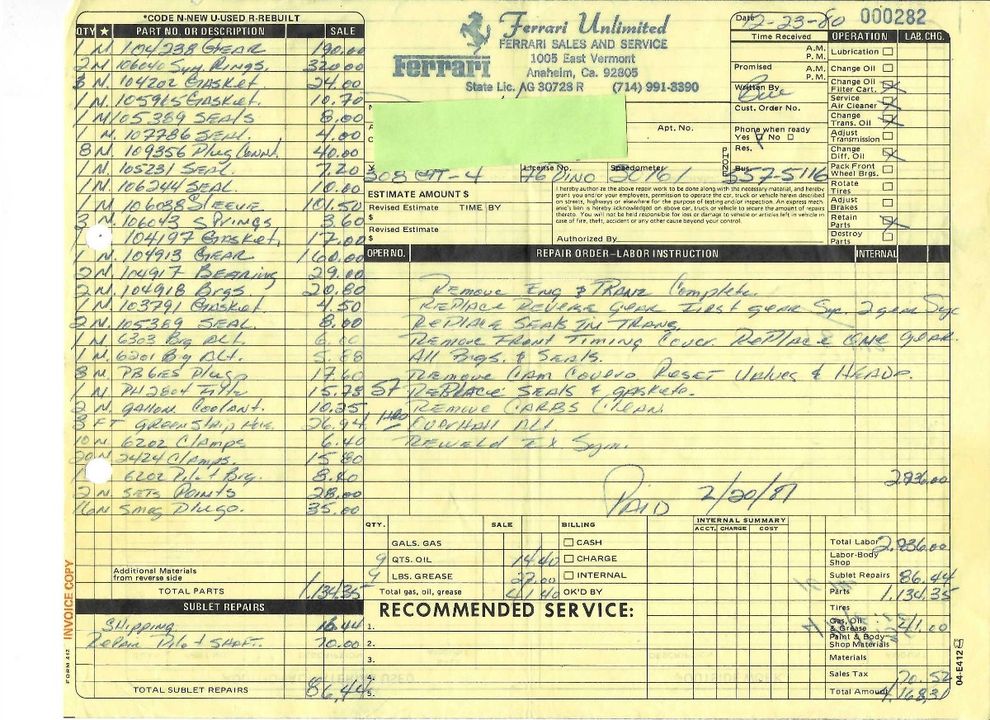 *CODE N-NEW U-USED R-REBUILT
QTY ★ PART NO. OR DESCRIPTION SALE
1 N 104238 GEAR 190.00
2 N 106040 Syn Rings, 320.00
3 N 104202 Gasket, 24.00
1 N. 105965 Gasket. 10.70
1 N 105389 SEALS 8.00
1 N. 107786 SEAL. 4.00
8 N. 109356 Plug Conn. 40.00
1 N. 105231 SEAL. 7.20
1 N. 106244 SEAL. 10.00
1 N. 106038 SLEEVE 101.50
3 N. 106043 SPRINGS 3.60
104197 Gasket, 17.00
1 N. 104913 GEAR 160.00
2 N. 104917 BEARING 29.00
2 N. 104918 Brgs 20.80
1 N. 103791 Gasket. 4.50
1 N. 105389 SEAL. 8.00
1 N. 6303 Brg ALT. 6.00
1 N. 6201 Brg ALT. 5.88
8 N PB6ES Plugs 17.60
1 N PH2804 15.73
2 N. GALLON COOLANT. 10.25
3 FT GREEN Strip Hose 26.94
10 N 6202 Clamps 6.40
20 N 2424 Clamps. 15.80
6202 Pilot Brg. 8.40
2 N. SETS POINTS 28.00
16 N Smog Plugs. 35.00
Additional Materials
from reverse side
TOTAL PARTS 1,134.35
SUBLET REPAIRS
Shipping 16.44
Repair Pilot SHAFT. 70.00
TOTAL SUBLET REPAIRS 86.44
INVOICE COPY
FORM 412
Ferrari
Ferrari Unlimited
FERRARI SALES AND SERVICE
1005 East Vermont
Anaheim, Ca. 92805
State Lic. AG 30728 R (714) 991-3390
Date 12-23-80 000282
Time Received
A.M.
P.M.
Promised A.M.
P.M.
Written By
Cust. Order No.
Apt. No.
Phone when ready
Yes No
PHONE
Res.
Bus. 557-5116
License No. Speedometer
308 GT-4 76 DINO
ESTIMATE AMOUNT $
Revised Estimate TIME BY
$
Revised Estimate
$
I hereby authorize the above repair work to be done along with the necessary material, and hereby
grant you and/or your employees, permission to operate the car, truck or vehicle herein described
on streets, highways or elsewhere for the purpose of testing and/or inspection. An express mechan-
ic's lien is hereby acknowledged on above car, truck or vehicle to secure the amount of repairs
thereto. You will not be held responsible for loss or damage to vehicle or articles left in vehicle in
case of fire, theft, accident or any other cause beyond your control.
Authorized By
OPERATION LAB. CHG.
Lubrication
Change Oil
Change Oil
Filter Cart.
Service
Air Cleaner
Change
Trans. Oil
Adjust
Transmission
Change
Diff. Oil
Pack Front
Wheel Brgs.
Rotate
Tires
Adjust
Brakes
Retain
Parts
Destroy
Parts
OPER NO. REPAIR ORDER–LABOR INSTRUCTION INTERNAL
Remove Eng & Trans Complete.
REPLACE REVERSE gear First gear Syn. 2 gear Syc
REPLACE SEALS IN TRANS.
Remove Front Timing Cover. REPLACE ONE GEAR.
All Brgs. & Seals.
Remove Cam Covers Reset Valves & Heads.
57 Replace SEALS & gaskets.
Remove CARBS Clean.
1 Overhall Alt
Reweld Ex Sym.
2,836.00
PAID 2/20/81
QTY. SALE
GALS. GAS
9 QTS. OIL 14.40
9 LBS. GREASE 27.00
Total gas, oil, grease 41.40
BILLING
CASH
CHARGE
INTERNAL
OK'D BY
INTERNAL SUMMARY
ACCT. CHARGE COST
RECOMMENDED SERVICE:
1.
2.
3.
4.
5.
Total Labor 2,836.00
Labor-Body
Shop
Sublet Repairs 86.44
Parts 1,134.35
Tires
Gas, Oil
& Grease 41.00
Paint & Body
Shop Materials
Materials
Sales Tax 70.52
Total Amount 4,168.31
04-E412